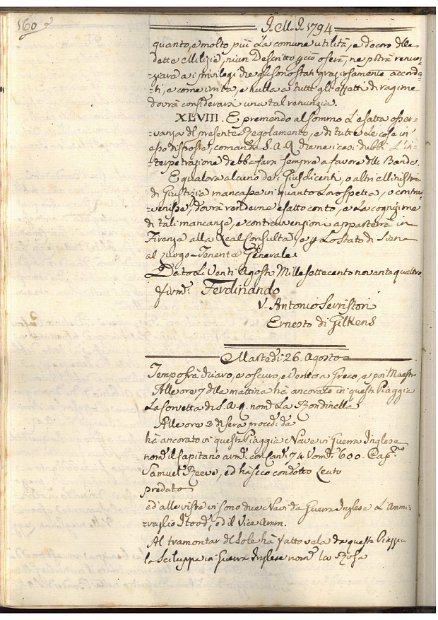 160
A. M. D. 1794
quanto, e molto più la comune utilità, e decoro delle
dette Milizie, niun Descritto può osera, ne potrà renun-
ziare a i privilegi che gli sono stati graziosamente accorda-
ti, e come irrita, e nulla a tutti gli effetti di ragione
dovrà considerarsi una tal renunzia.
XLVIII. E premendo al sommo l'esatta osser-
vanza del presente Regolamento, e di tutte le cose in
esso disposte, comanda S. A. R. che ne i casi dubbi l'in-
terpetrazione debba farsi sempre a favore delle Bande.
E qualora alcuno dei Giusdicenti, o altri Ministri
di Giustizia mancasse in quanto lo rispetta, o contra-
venisse, dovrà renderne esatto conto, e la cognizione
di tali mancanze, e contravvenzioni apparterrà in
Firenze alla Real Consulta, e per lo Stato di Siena
al Luogo-Tenente Generale.
Dato li Venti Agosto Mille settecento novanta quattro
firm. Ferdinando
V. Antonio Serristori
Ernesto di Gilkens
Martedì 26. Agosto
Tempo fra chiaro, e oscuro, e vento a Greco, e poi Maestro
Alle ore 7 della mattina ha ancorato in questa Piaggia
la Corvetta di S. A. R. nom. La Rondinella
Alle ore 3 di sera proced. da
ha ancorato in questa Piaggia Nave di Guerra Inglese
nom. il Capitano arm. con Can. 74 Uom. 600. Cap.
Samuel Reeve, ed ha seco condotto
predato
ed alle viste vi sono due Navi da Guerra Inglese L'Ammi-
raglio Hood, ed il Vice Amm.
Al tramontar del Sole ha fatto vela da questa Piaggia
lo Sciluppe in Guerra Inglese nom. la